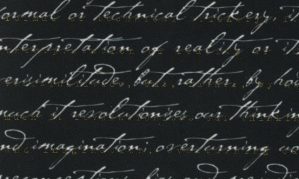 ormal or technical trickery, it
nterpretation of reality or it
erisimilitude, but rather, by how
much it revolutionises our thinking
nd imagination; overturning